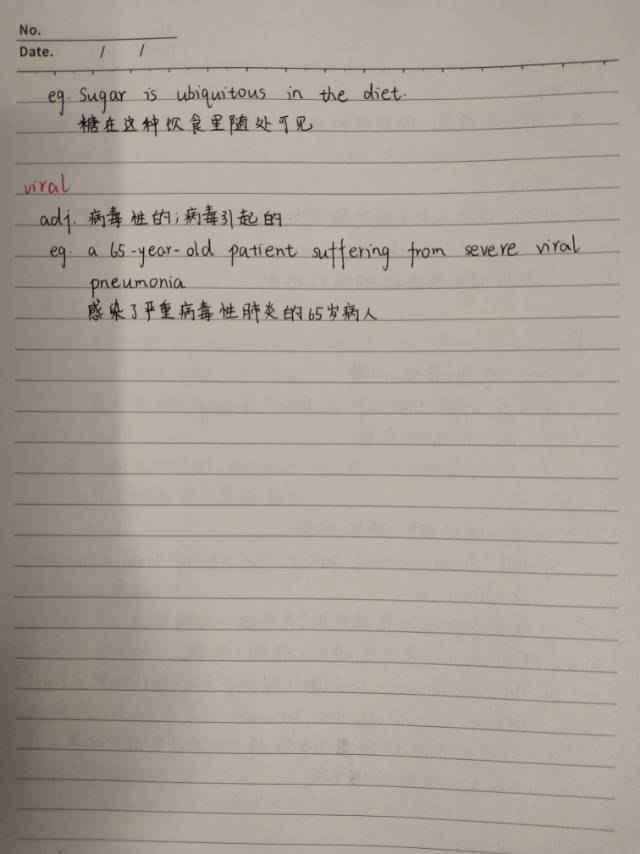 No.
Date. / /
eg. Sugar is ubiquitous in the diet.
糖在这种饮食里随处可见
viral
adj. 病毒性的；病毒引起的
eg. a 65-year-old patient suffering from severe viral
pneumonia
感染了严重病毒性肺炎的65岁病人